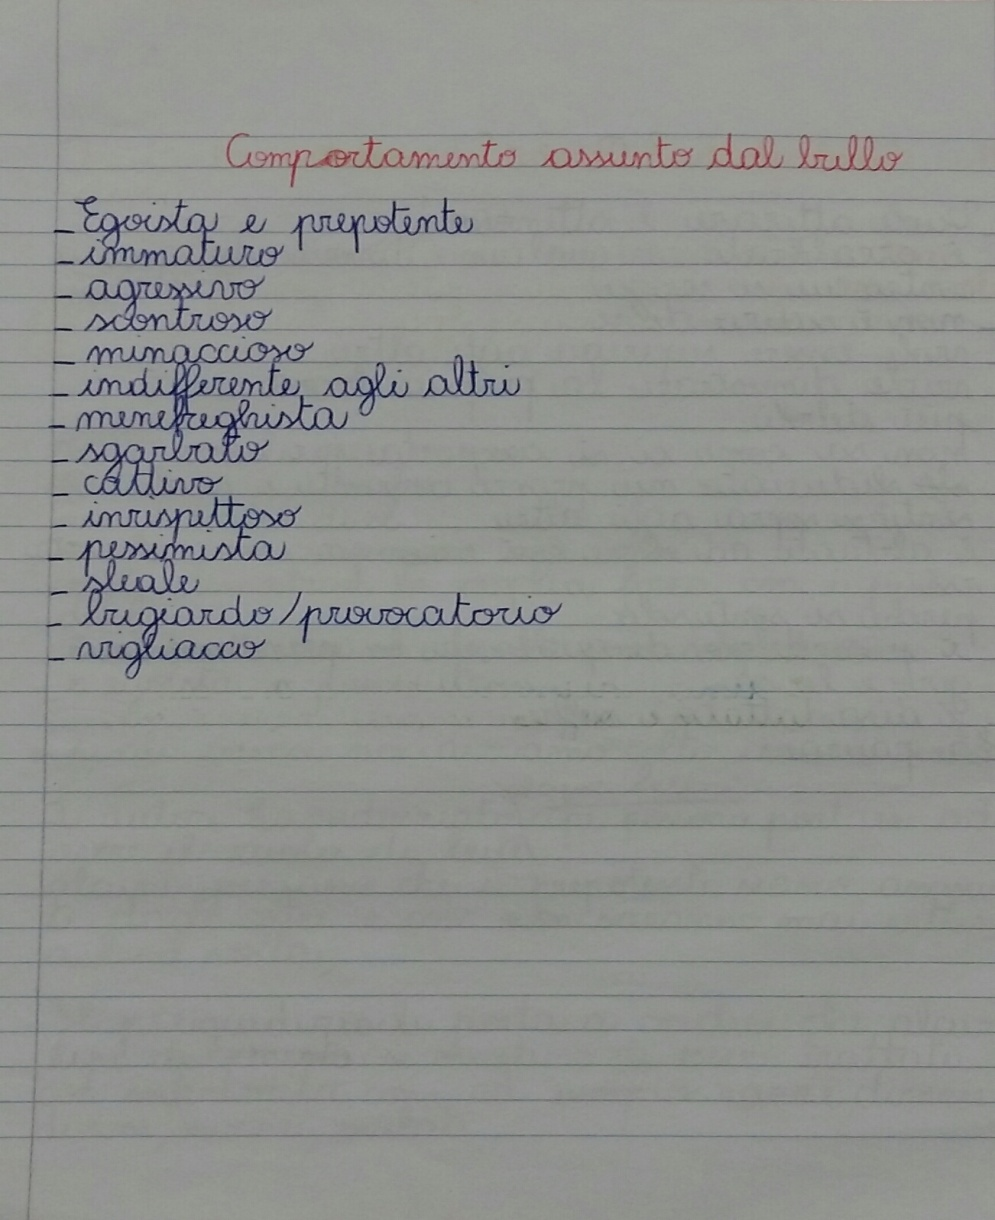 Comportamento assunto dal bullo
- Egoista e prepotente
- immaturo
- agressivo
- scontroso
- minaccioso
- indifferente agli altri
- menefreghista
- sgarbato
- cattivo
- inrispettoso
- pessimista
- sleale
- brugiardo/provocatorio
- vigliacco